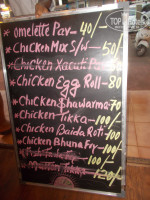 TOP
* omelette Pav - 40/-
* Chicken Mix S/w - 50/-
* Chicken Xacuti Pa
* Chicken Egg Roll - 80
* Chicken Shawarma - 70
* Chicken Tikka - 100/-
* Chicken Baida Roti - 100
* Chicken Bhuna Fry - 100/-
100/-
* Mutton 120/-